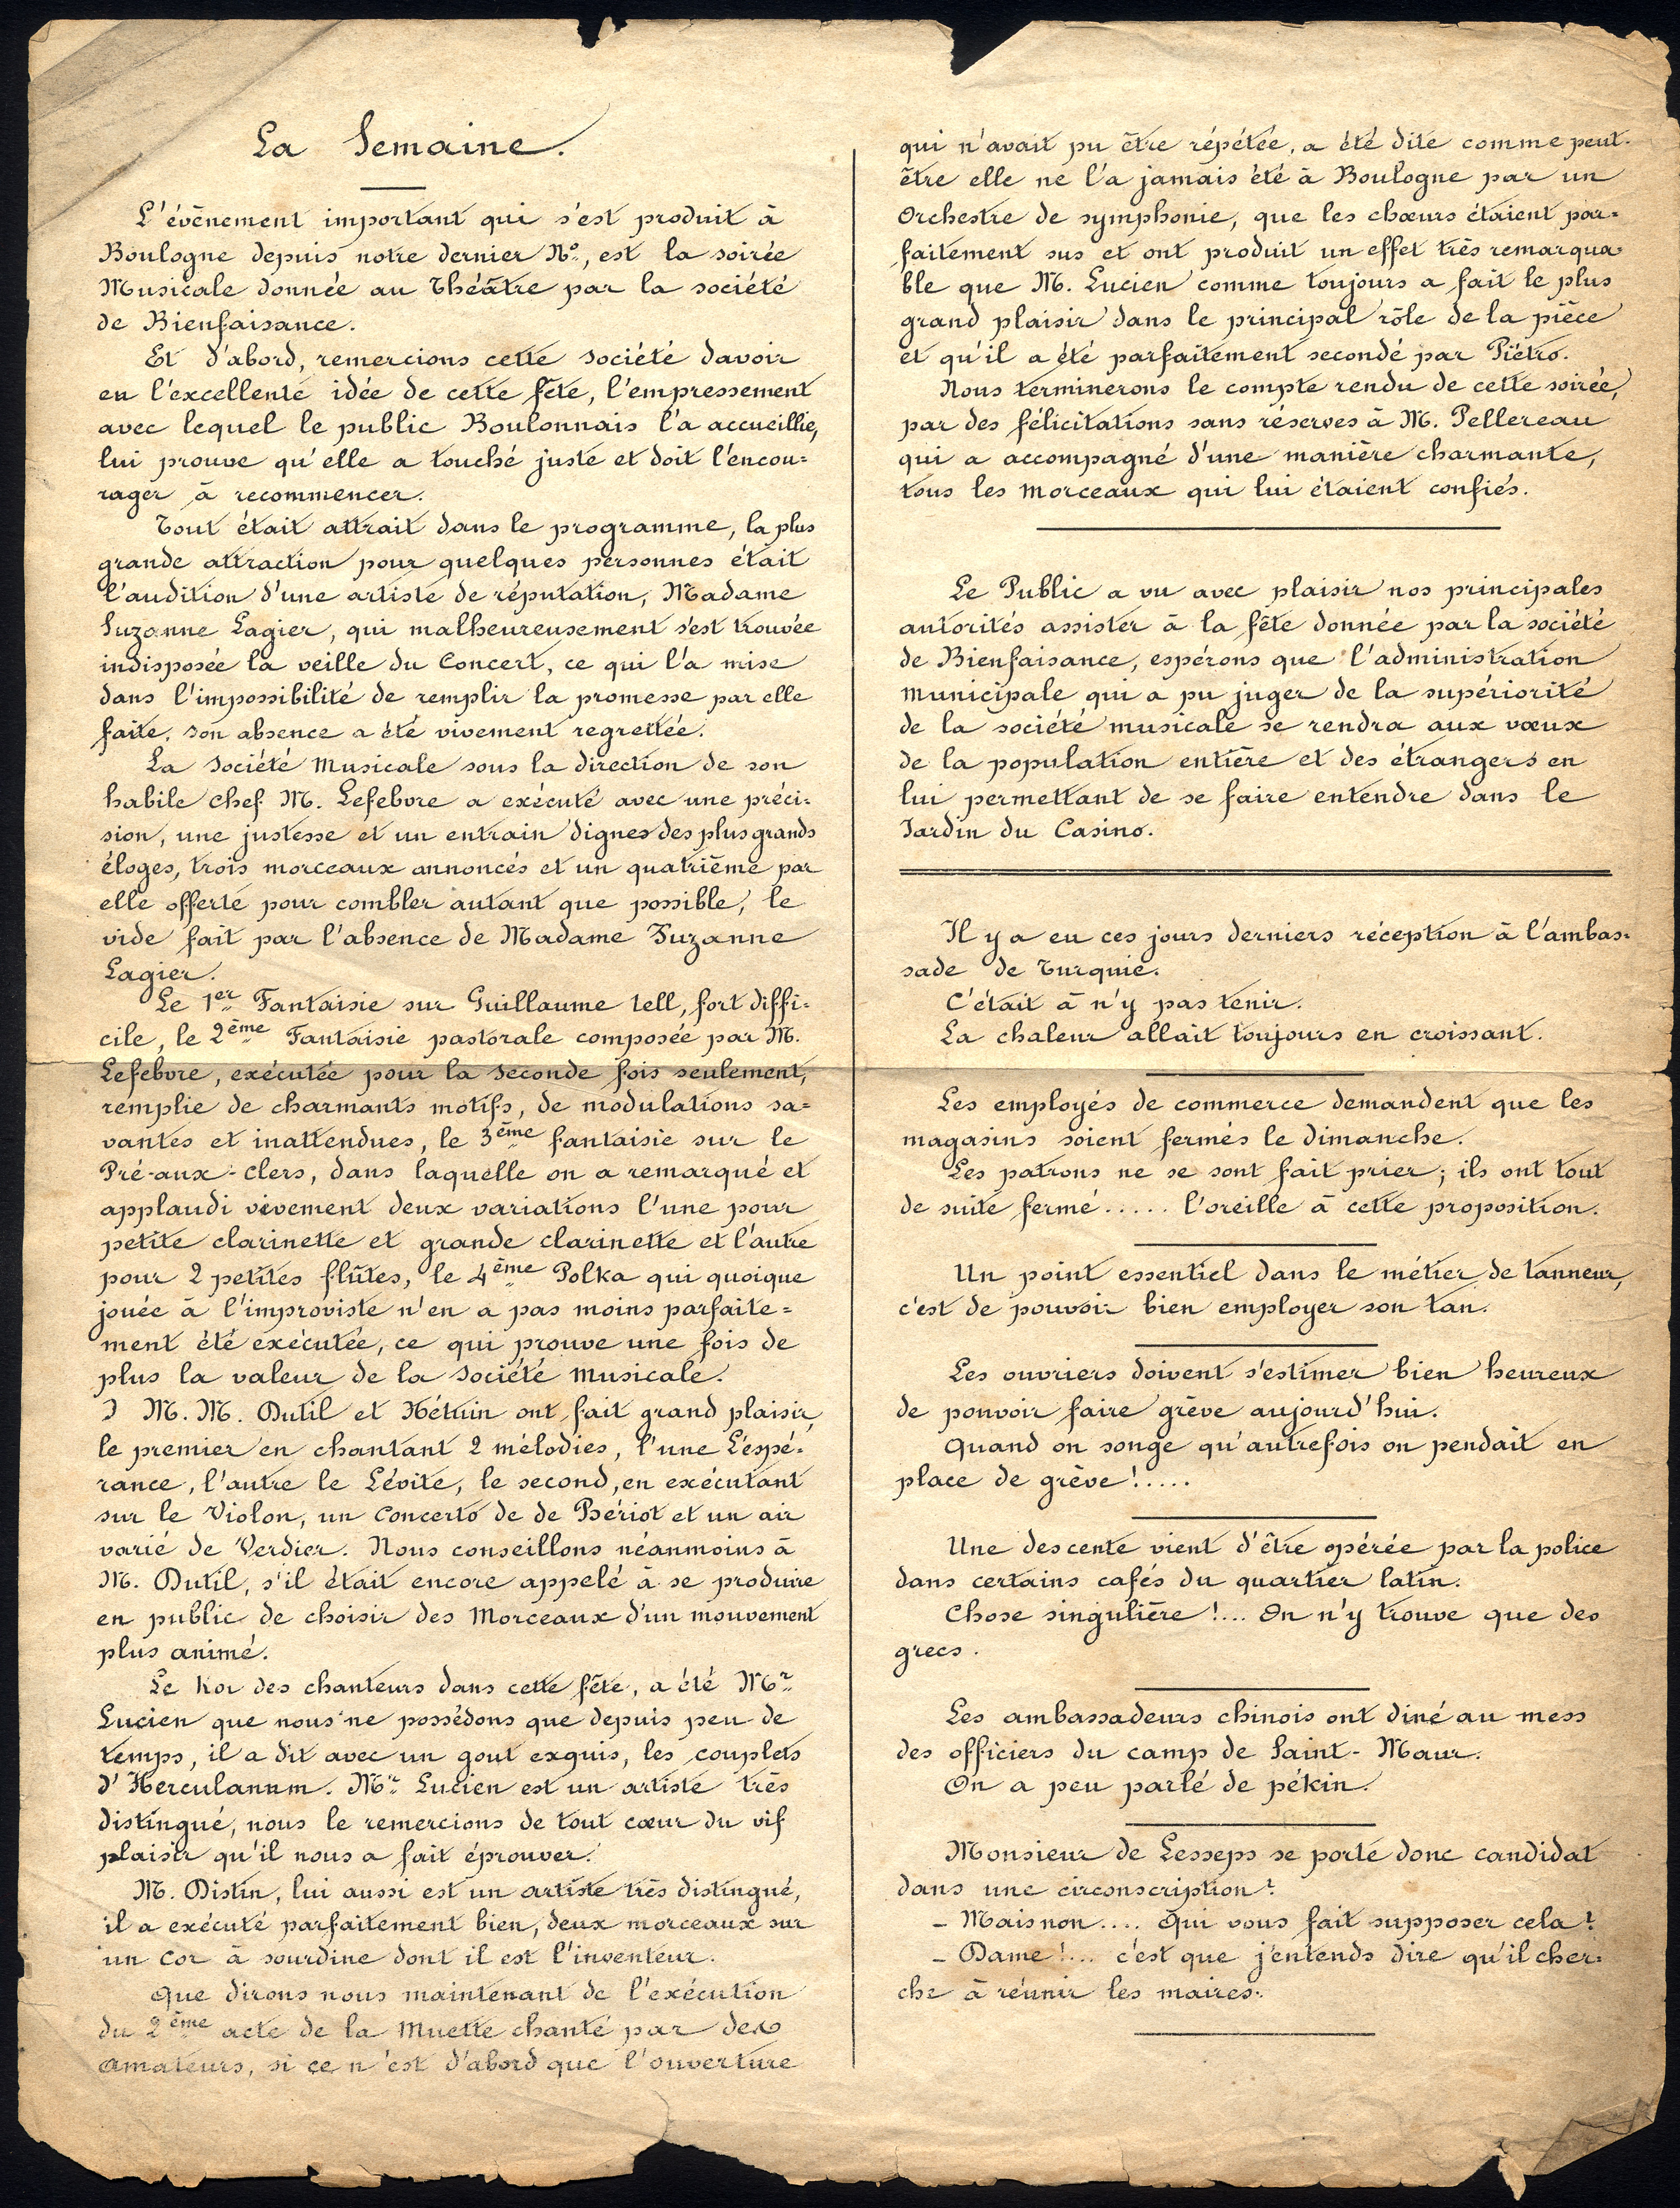 La Semaine.
L'évènement important qui s'est produit à
Boulogne depuis notre dernier No, est la soirée
Musicale donnée au Théâtre par la société
de Bienfaisance.
Et d'abord, remercions cette société davoir
eu l'excellente idée de cette fête, l'empressement
avec lequel le public Boulonnais l'a accueillie,
lui prouve qu'elle a touché juste et doit l'encou=
rager à recommencer.
Tout était attrait dans le programme, la plus
grande attraction pour quelques personnes était
l'audition d'une artiste de réputation, Madame
Suzanne Lagier, qui malheureusement s'est trouvée
indisposée la veille du Concert, ce qui l'a mise
dans l'impossibilité de remplir la promesse par elle
faite. son absence a été vivement regrettée.
La société Musicale sous la direction de son
habile chef M. Lefebvre a exécuté avec une préci=
sion, une justesse et un entrain dignes des plus grands
éloges, trois morceaux annoncés et un quatrième par
elle offerte pour combler autant que possible, le
vide fait par l'absence de Madame Suzanne
Lagier.
Le 1er Fantaisie sur Guillaume tell, fort diffi=
cile, le 2ème Fantaisie pastorale composée par M.
Lefebvre, exécutée pour la seconde fois seulement,
remplie de charmants motifs, de modulations sa=
vantes et inattendues, le 3ème fantaisie sur le
Pré-aux-Clers, dans laquelle on a remarqué et
applaudi vivement deux variations l'une pour
petite clarinette et grande clarinette et l'autre
pour 2 petites flûtes, le 4ème Polka qui quoique
jouée à l'improviste n'en a pas moins parfaite=
ment été exécutée, ce qui prouve une fois de
plus la valeur de la société musicale.
M. M. Dutil et Hétuin ont fait grand plaisir,
le premier en chantant 2 mélodies, l'une L'espé=
rance, l'autre le Lévite, le second, en exécutant
sur le Violon, un Concerto de de Bériot et un air
varié de Verdier. Nous conseillons néanmoins à
M. Dutil, s'il était encore appelé à se produire
en public de choisir des Morceaux d'un mouvement
plus animé.
Le Roi des chanteurs dans cette fête, a été Mr
Lucien que nous ne possédons que depuis peu de
temps, il a dit avec un gout exquis, les couplets
d'Herculanum. Mr Lucien est un artiste très
distingué, nous le remercions de tout cœur du vif
plaisir qu'il nous a fait éprouver.
M. Distin, lui aussi est un artiste très distingué,
il a exécuté parfaitement bien, deux morceaux sur
un Cor à sourdine dont il est l'inventeur.
Que dirons nous maintenant de l'exécution
du 2ème acte de la Muette chanté par des
amateurs, si ce n'est d'abord que l'ouverture
qui n'avait pu être répétée, a été dite comme peut-
être elle ne l'a jamais été à Boulogne par un
Orchestre de symphonie, que les chœurs étaient par=
faitement sus et ont produit un effet très remarqua=
ble que M. Lucien comme toujours a fait le plus
grand plaisir dans le principal rôle de la pièce
et qu'il a été parfaitement secondé par Piétro.
Nous terminerons le compte rendu de cette soirée,
par des félicitations sans réserves à M. Pellereau
qui a accompagné d'une manière charmante,
tous les morceaux qui lui étaient confiés.
Le Public a vu avec plaisir nos principales
autorités assister à la fête donnée par la société
de Bienfaisance, espérons que l'administration
municipale qui a pu juger de la supériorité
de la société musicale se rendra aux vœux
de la population entière et des étrangers en
lui permettant de se faire entendre dans le
Jardin du Casino.
Il y a eu ces jours derniers réception à l'ambas=
sade de Turquie.
C'était à n'y pas tenir.
La chaleur allait toujours en croissant.
Les employés de commerce demandent que les
magasins soient fermés le dimanche.
Les patrons ne se sont fait prier; ils ont tout
de suite fermé ..... l'oreille à cette proposition.
Un point essentiel dans le métier de tanneur,
c'est de pouvoir bien employer son tan.
Les ouvriers doivent s'estimer bien heureux
de pouvoir faire grève aujourd'hui.
Quand on songe qu'autrefois on pendait en
place de grève!.....
Une descente vient d'être opérée par la police
dans certains cafés du quartier latin.
Chose singulière!... On n'y trouve que des
grecs.
Les ambassadeurs chinois ont diné au mess
des officiers du camp de Saint-Maur.
On a peu parlé de pékin.
Monsieur de Lesseps se porte donc candidat
dans une circonscription?
- Mais non.... Qui vous fait supposer cela?
- Dame!... c'est que j'entends dire qu'il cher=
che à réunir les maires.